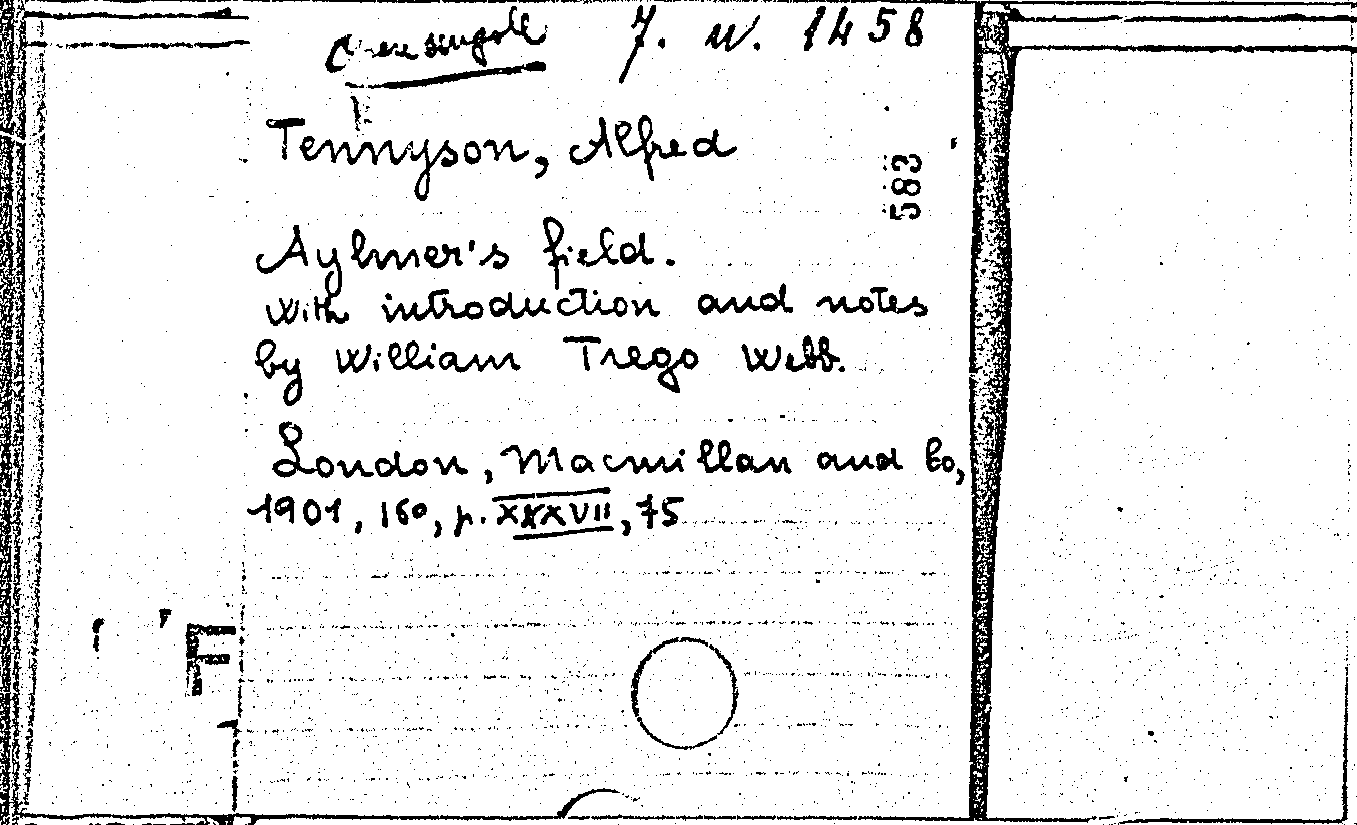 Opere singole 7. w. 1458
Tennyson, Alfred
583
Aylmer's field.
With introduction and notes
by William Trego Webb.
London, Macmillan and Co,
1901, 16º, p. XXXVII, 75
F